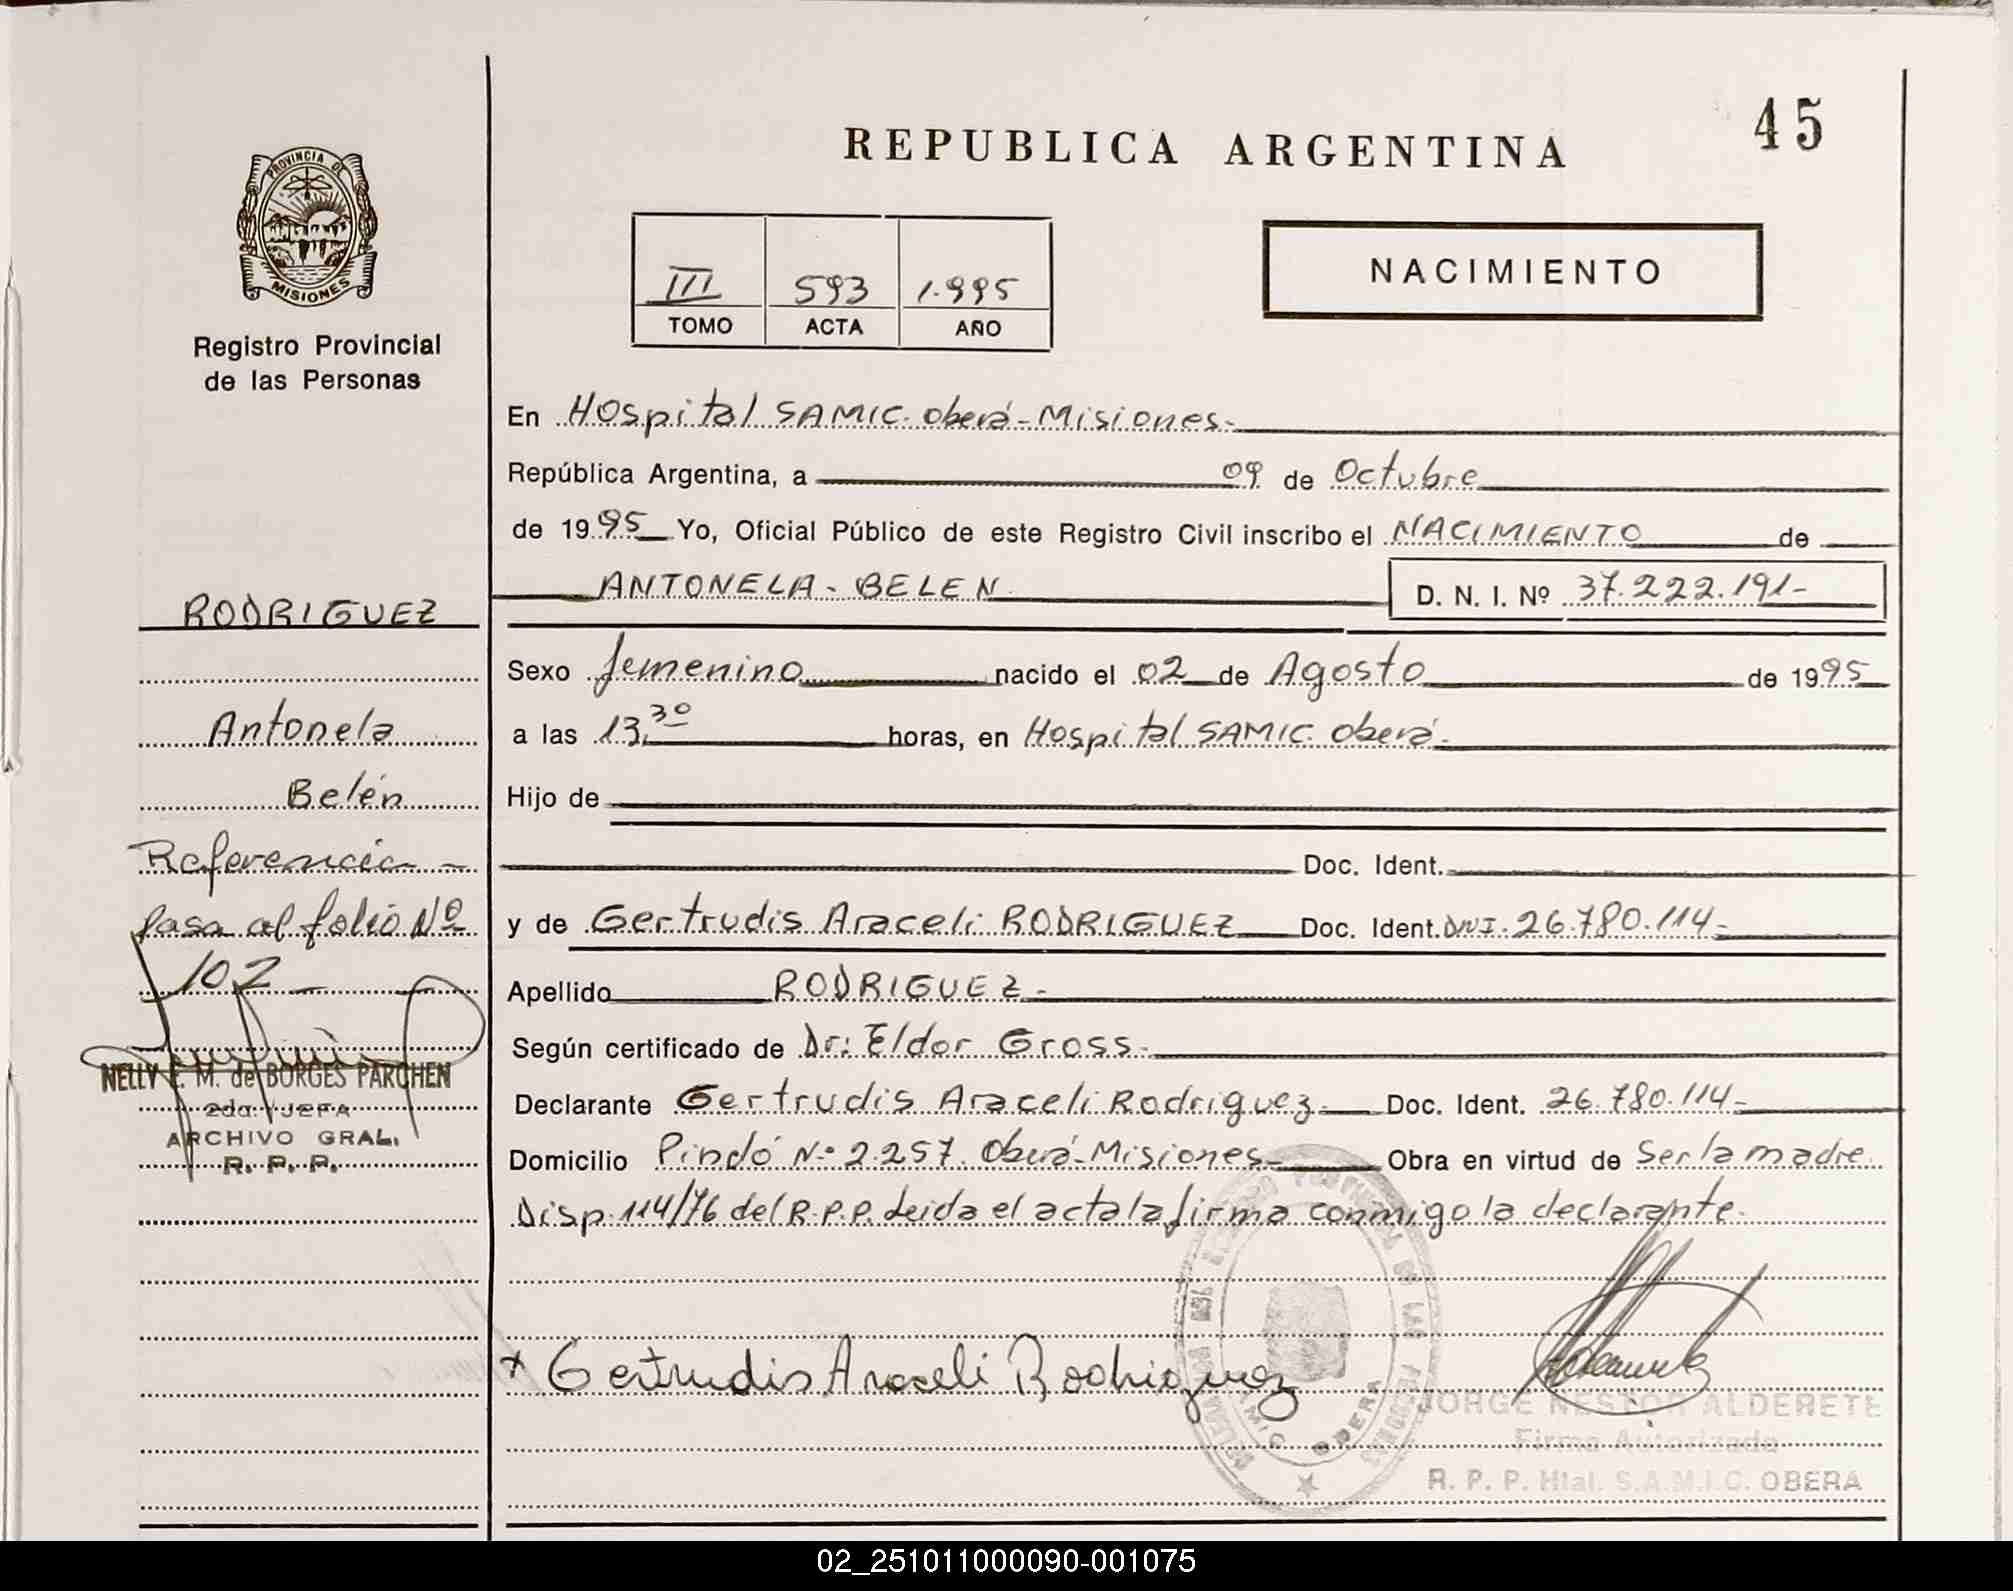 45
REPUBLICA ARGENTINA
PROVINCIA DE
MISIONES
Registro Provincial
de las Personas
III 593 1.995
TOMO ACTA AÑO
NACIMIENTO
En Hospital SAMIC. Oberá - Misiones.-
República Argentina, a 09 de Octubre
de 1995 Yo, Oficial Público de este Registro Civil inscribo el NACIMIENTO de
ANTONELA - BELEN D. N. I. Nº 37.222.191-
RODRIGUEZ
Antonela
Belén
Referencia -
pasa al folio Nº
102 -
NELLY E. M. de BORGES PARCHEN
2da. JEFA
ARCHIVO GRAL.
R. P. P.
Sexo femenino nacido el 02 de Agosto de 1995
a las 13,30 horas, en Hospital SAMIC. Oberá.-
Hijo de
Doc. Ident.
y de Gertrudis Araceli RODRIGUEZ Doc. Ident. DNI. 26.780.114-
Apellido RODRIGUEZ -
Según certificado de Dr: Eldor Gross.-
Declarante Gertrudis Araceli Rodriguez Doc. Ident. 26.780.114-
Domicilio Pindó Nº 2.257. Oberá-Misiones Obra en virtud de Ser la madre.
Disp. 114/76 del R.P.P. Leida el acta la firma conmigo la declarante.
+ Gertrudis Araceli Rodriguez
OBERA
JORGE NESTOR ALDERETE
Firma Autorizada
R. P. P. Htal. S.A.M.I.C. OBERA
02_251011000090-001075